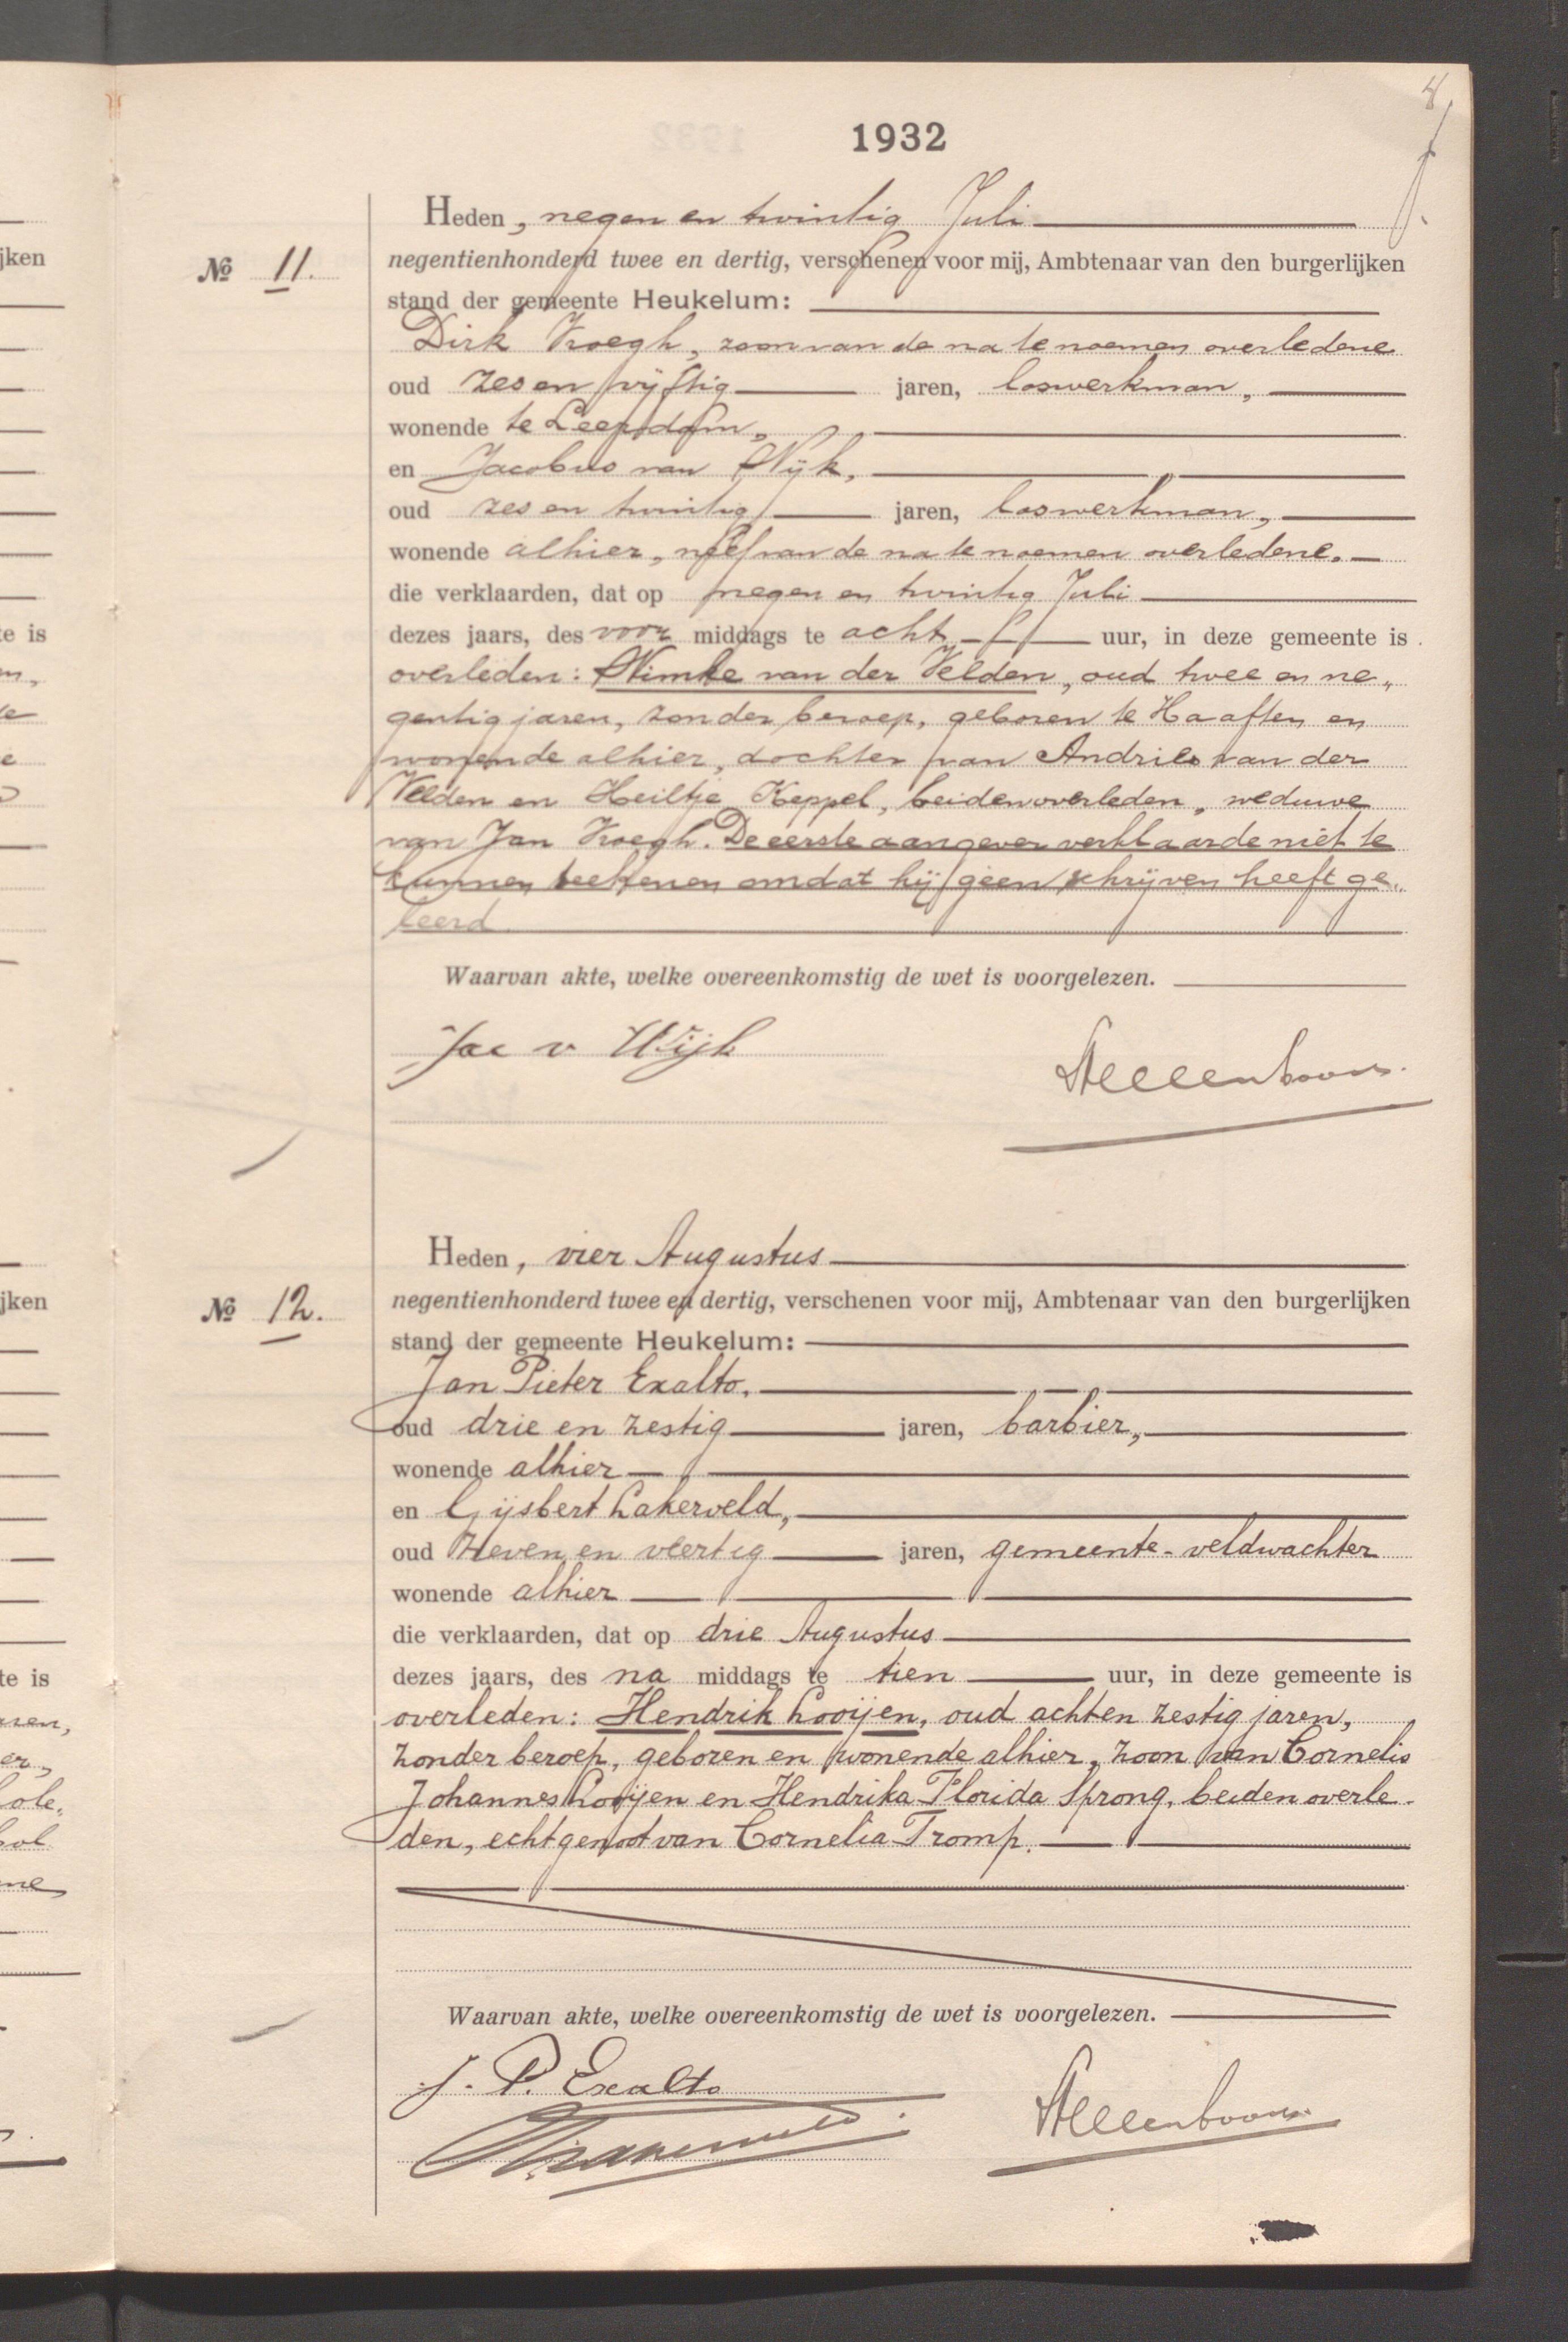 1932
Heden, negen en twintig Juli
№ 11.
negentienhonderd twee en dertig, verschenen voor mij, Ambtenaar van den burgerlijken
stand der gemeente Heukelum:
Dirk Kroegh, zoon van de na te noemen overledene
oud zes en vijftig jaren, loswerkman,
wonende te Leerdam,
en Jacobus van Wijk,
oud zes en twintig jaren, loswerkman,
wonende alhier, neef van de na te noemen overledene.
die verklaarden, dat op negen en twintig Juli
dezes jaars, des voor middags te acht uur, in deze gemeente is
overleden: Wimke van der Velden, oud twee en ne„
gentig jaren, zonder beroep, geboren te Haaften en
wonende alhier, dochter van Andries van der
Velden en Heiltje Keppel, beiden overleden, weduwe
van Jan Kroegh. De eerste aangever verklaarde niet te
kunnen teekenen omdat hij geen schrijven heeft ge„
leerd
Waarvan akte, welke overeenkomstig de wet is voorgelezen.
Jac v Wijk
Heden, vier Augustus
№ 12.
negentienhonderd twee en dertig, verschenen voor mij, Ambtenaar van den burgerlijken
stand der gemeente Heukelum:
Jan Pieter Exalto,
oud drie en zestig jaren, barbier,
wonende alhier
en Gijsbert Lakerveld,
oud zeven en veertig jaren, gemeente-veldwachter
wonende alhier
die verklaarden, dat op drie Augustus
dezes jaars, des na middags te tien uur, in deze gemeente is
overleden: Hendrik Looijen, oud acht en zestig jaren,
zonder beroep, geboren en wonende alhier, zoon van Cornelis
Johannes Looijen en Hendrika Florida Sprong, beiden overle-
den, echtgenoot van Cornelia Tromp.
Waarvan akte, welke overeenkomstig de wet is voorgelezen.
J. P. Exalto